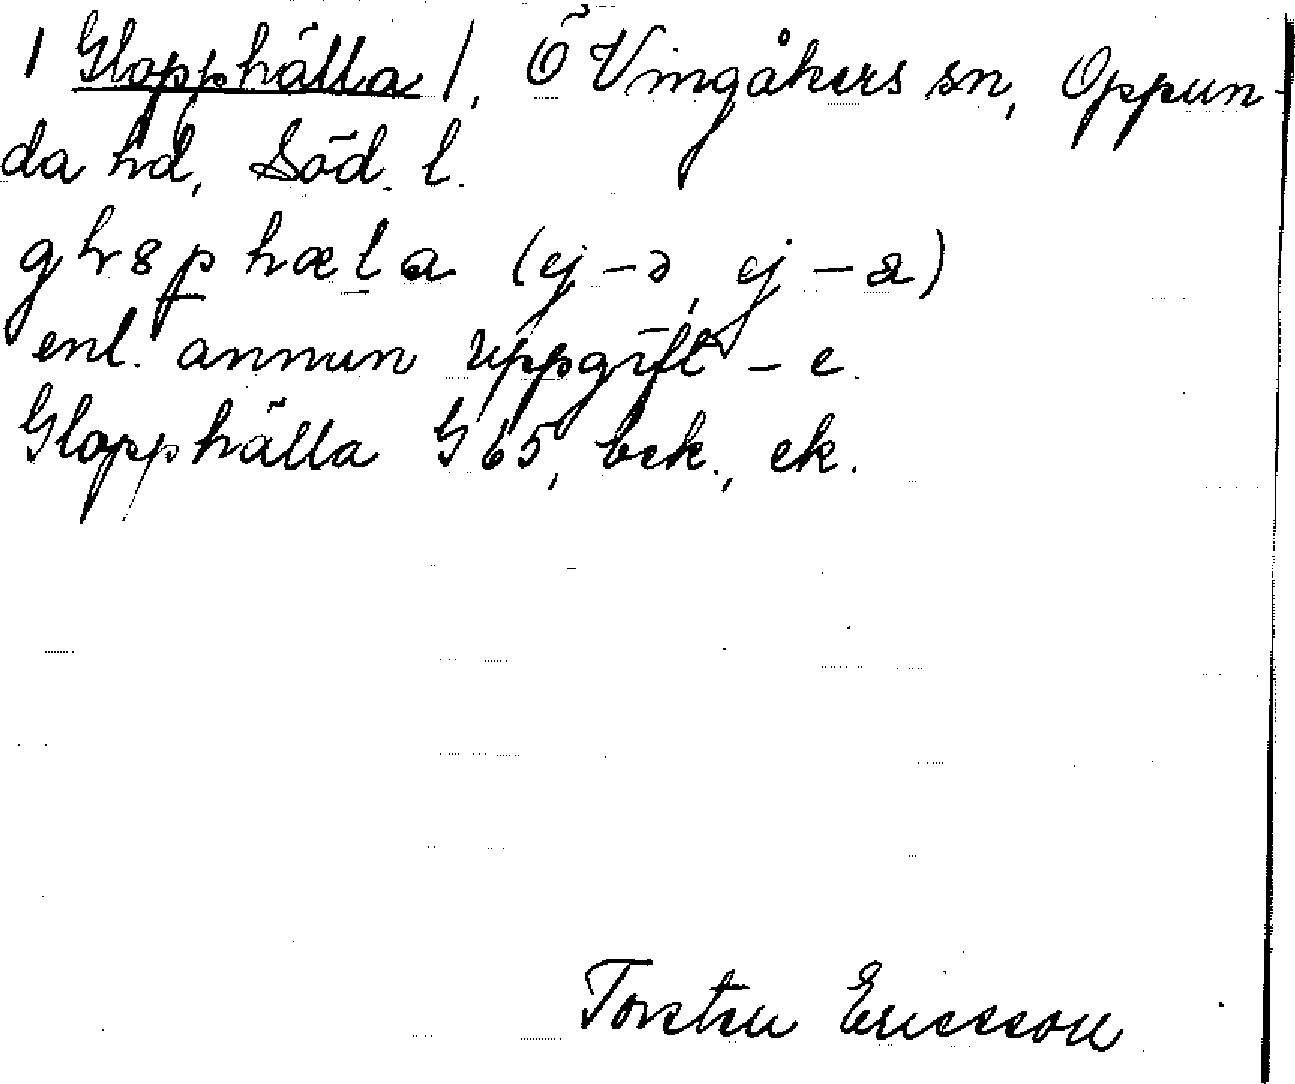 1 Glopphälla /, Ö Vingåkers sn, Oppun-
da hd, Söd. l.
(ej -ə, ej -a)
enl. annan uppgift - e.
Glopphälla G 65, bek., ek.
Torsten Ericsson